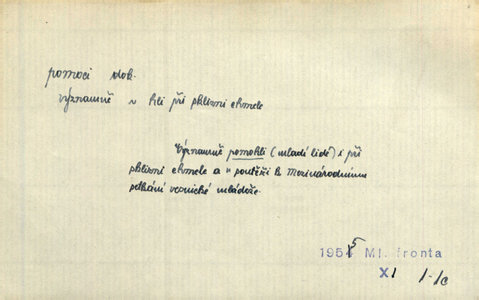 pomoci dok.
významně v hli při sklizni chmele
Významně pomohli (mladí lidé) i při
sklizni chmele a v soutěži k Mezinárodnímu
setkání vesnické mládeže.
1955 Ml. fronta
XI 1-1c